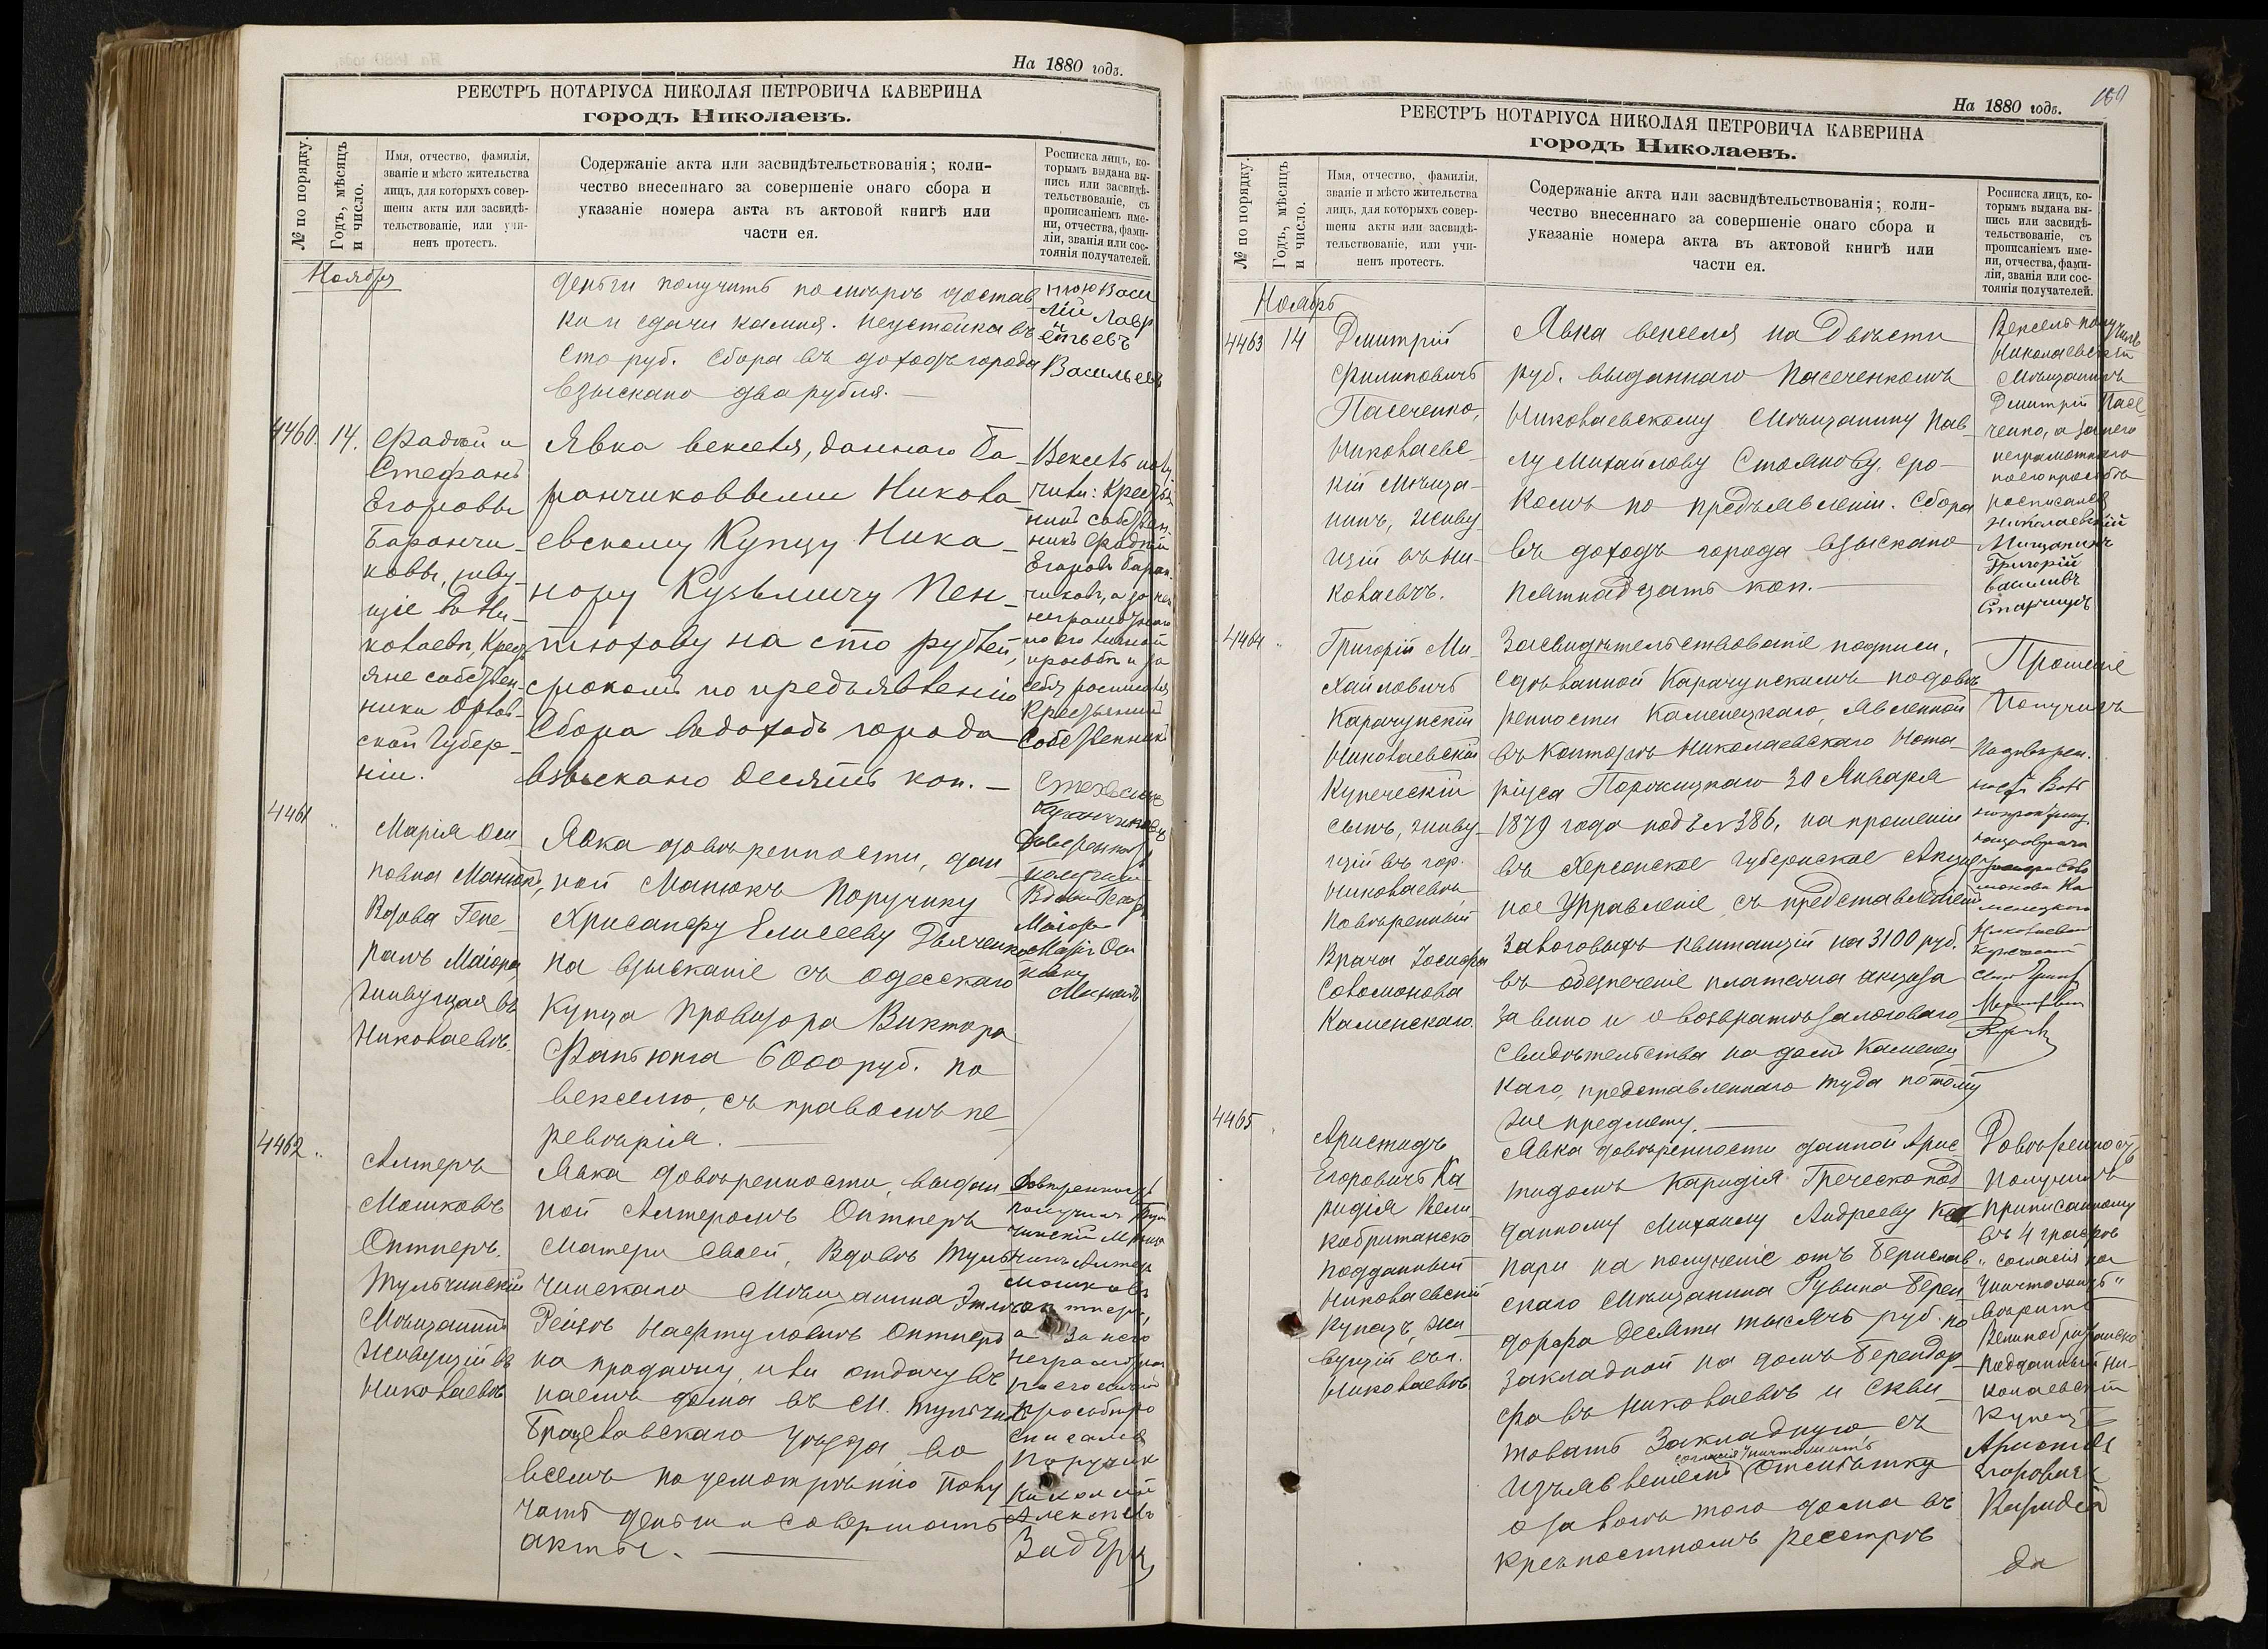 На 1880 годъ.
РЕЕСТРЪ НОТАРІУСА НИКОЛАЯ ПЕТРОВИЧА КАВЕРИНА
городъ Николаевъ.
№ по порядку.
Годъ, мѣсяцъ
и число.
Имя, отчество, фамилія,
званіе и мѣсто жительства
лицъ, для которыхъ совер-
шены акты или засвидѣ-
тельствованіе, или учи-
ненъ протестъ.
Содержаніе акта или засвидѣтельствованія; коли-
чество внесеннаго за совершеніе онаго сбора и
указаніе номера акта въ актовой книгѣ или
части ея.
Росписка лицъ, ко-
торымъ выдана вы-
пись или засвидѣ-
тельствованіе, съ
прописаніемъ име-
ни, отчества, фами-
ліи, званія или сос-
тоянія получателей.
Ноября
деньги получить по мѣрѣ достав
ки и сдачи камня. Неустойка въ
сто руб. Сбора въ доходъ города
взыскано два рубля.
Васи
лій Лавр
ентьевъ
Васильевъ
4460. 14.
Фадѣй и
Стефанъ
Егоровы
Баранчи-
ковы, живу-
щіе въ Ни-
колаевѣ, Кресть
яне собствен-
ники Орлов-
ской Губер-
ніи.
Явка векселя, даннаго Ба-
ранчиковыми Никола-
евскому Купцу Ника-
нору Кузьмичу Пен-
тюхову на сто рублей,
срокомъ по предъявленію
Сбора въ доходъ города
взыскано десять коп. —
Вексель полу
чили: Крестья
нинъ собствен
никъ Фадѣй
Егоровъ Баран
чиковъ, а за него
неграмотнаго
по его личной
просьбѣ и за
себя росписался
Крестьянинъ
Собственникъ
4461 "
Марія Оси
повна Манюкъ,
Вдова Гене
ралъ Маіора
живущая въ
Николаевѣ.
Явка довѣренности, дан-
ной Манюкъ Поручику
Хрисанфу Елисееву Дьяченко
на взысканіе съ одесскаго
Купца Провизора Виктора
Фантюнга 6000 руб. по
векселю, съ правомъ пе-
ревѣрія.
Довѣренность
получила
Вдова Генер
Маіора
Марія Оси
повна
Манюкъ
4462 "
Алтеръ
Мошковъ
Онтперъ.
Тульчинскій
Мѣщанинъ
живущій въ
Николаевѣ
Явка довѣренности, выдан
ной Алтеромъ Онтперъ
Матери своей, Вдовѣ Туль
чинскаго Мѣщанина Этль
Рейзѣ Нафтуловнѣ Онтперъ
на продажу, или отдачу въ
наемъ дома въ м. Тульчинѣ
Брацлавскаго уѣзда, во
всемъ по усмотрѣнію Полу
чать деньги и совершать
акты. —
Довѣренность
получилъ Туль
чинскій Мѣща
нинъ Алтеръ
Мошковъ
Онтперъ,
а за него
неграмотнаго
по его личной
просьбѣ ро
списался
Поручикъ
Николай
Алексѣевъ
На 1880 годъ.
РЕЕСТРЪ НОТАРІУСА НИКОЛАЯ ПЕТРОВИЧА КАВЕРИНА
городъ Николаевъ.
№ по порядку.
Годъ, мѣсяцъ
и число.
Имя, отчество, фамилія,
званіе и мѣсто жительства
лицъ, для которыхъ совер-
шены акты или засвидѣ-
тельствованіе, или учи-
ненъ протестъ.
Содержаніе акта или засвидѣтельствованія; коли-
чество внесеннаго за совершеніе онаго сбора и
указаніе номера акта въ актовой книгѣ или
части ея.
Росписка лицъ, ко-
торымъ выдана вы-
пись или засвидѣ-
тельствованіе, съ
прописаніемъ име-
ни, отчества, фами-
ліи, званія или сос-
тоянія получателей.
Ноябрь
4463 14
Дмитрій
Филиповичъ
Пасеченко,
Николаевс-
кій мѣща-
нинъ, живу
щій въ Ни-
колаевѣ.
Явка векселя на Двѣсти
руб. выданнаго Пасеченкомъ
Николаевскому Мѣщанину Пав-
лу Михайлову Стоянову, сро-
комъ по предъявленіи. Сбора
въ доходъ города взыскано
пятнадцать коп. —
Вексель получилъ
Николаевскій
Мѣщанинъ
Дмитрій Пасе
ченко, а за него
неграмотнаго
по его просьбѣ
росписался
Николаевскій
Мѣщанинъ
Григорій
4464 "
Григорій Ми-
хайловичъ
Карачунскій
Николаевскій
Купеческій
сынъ, живу-
щій въ гор.
Николаевѣ,
Повѣренный
Врача Іосифа
Соломонова
Каменскаго.
Засвидѣтельствованіе подписи,
сдѣланной Карачунскимъ по довѣ
ренности Каменецкаго, явленной
въ Конторѣ Николаевскаго Нота-
ріуса Порожицкаго 30 Января
1879 года подъ № 386, на прошеніи
въ Херсонское Губернское Акциз
ное Управленіе, съ представленіемъ
залоговыхъ квитанцій на 3100 руб.
въ обезпеченіе платежа акциза
за вино и о возвратѣ залоговаго
свидѣтельства на домъ Каменец
каго, представленнаго туда по тому
же предмету. —
Прошеніе
Получилъ
По довѣрен.
Іосифа Соло
монова Ка
менецкаго
Николаевскій
Купеческій
сынъ
4465 "
Аристидъ
Егоровичъ Ка
ридія Вели
кобританско
подданный
Николаевскій
Купецъ, жи-
вущій въ г.
Николаевѣ
Явка довѣренности данной Арис
тидомъ Каридія Греческопод
данному Михаилу Андрееву Ка
пари на полученіе отъ Берислав
скаго Мѣщанина Рувина Берен
дорфа десяти тысячъ руб. по
закладной на домъ Берендор
фа въ Николаевѣ и
закладную съ
изъявленіемъ согласія уничтожить отмѣтку
о залогѣ того дома въ
крѣпостномъ реестрѣ
Довѣренность
Получилъ
Приписанному
въ 4 графѣ
„согласія на
уничтожить"
вѣрить
Великобританско
подданный Ни-
колаевскій
Купецъ
Аристидъ
Егоровичъ
Каридія
да